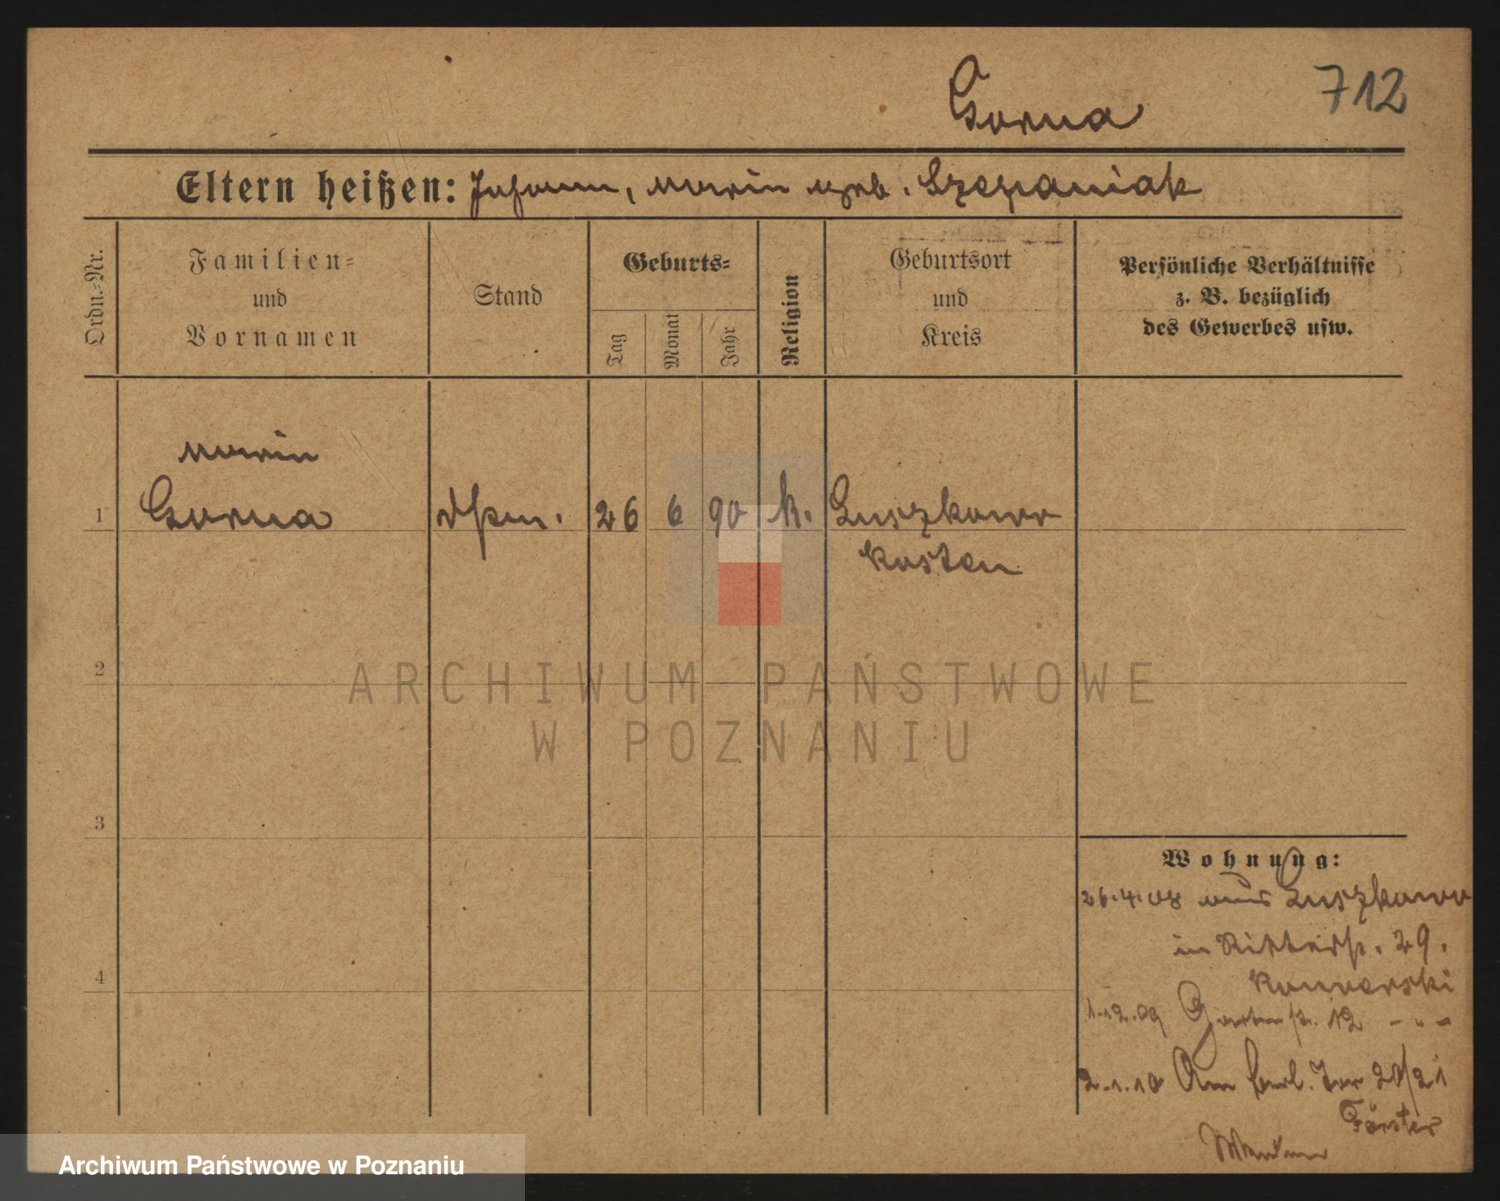 712
Gorna
Eltern heißen: Johann, Marie geb. Szczepaniak
Ordn.-Nr.
Familien-
und
Vornamen
Stand
Geburts-
Tag
Monat
Jahr
Religion
Geburtsort
und
Kreis
Persönliche Verhältnisse
z. B. bezüglich
des Gewerbes usw.
Marie
1 Gorna 26 6 90 k. Luszkowo
Kosten
2
3
4
Wohnung:
26.4.08 aus Luszkowo
in Ritterstr. 29.
1.12.09 Gartenstr. 12 - " -
2.1.10 Am Berl. Tor 20/21
Förster
ARCHIWUM PAŃSTWOWE
W POZNANIU
Archiwum Państwowe w Poznaniu